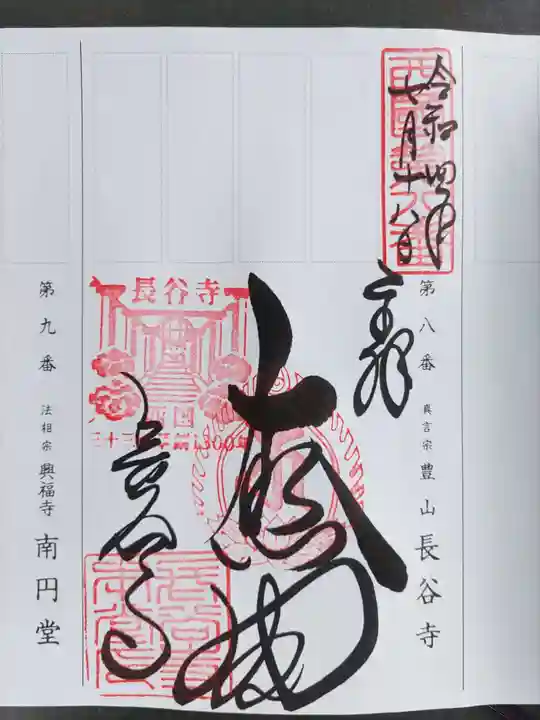 令和四年
七月十八日
奉拝
第八番 真言宗 豊山 長谷寺
長谷寺
西国
三十三所草創1300年
大悲閣
長谷寺
第九番 法相宗 興福寺 南円堂